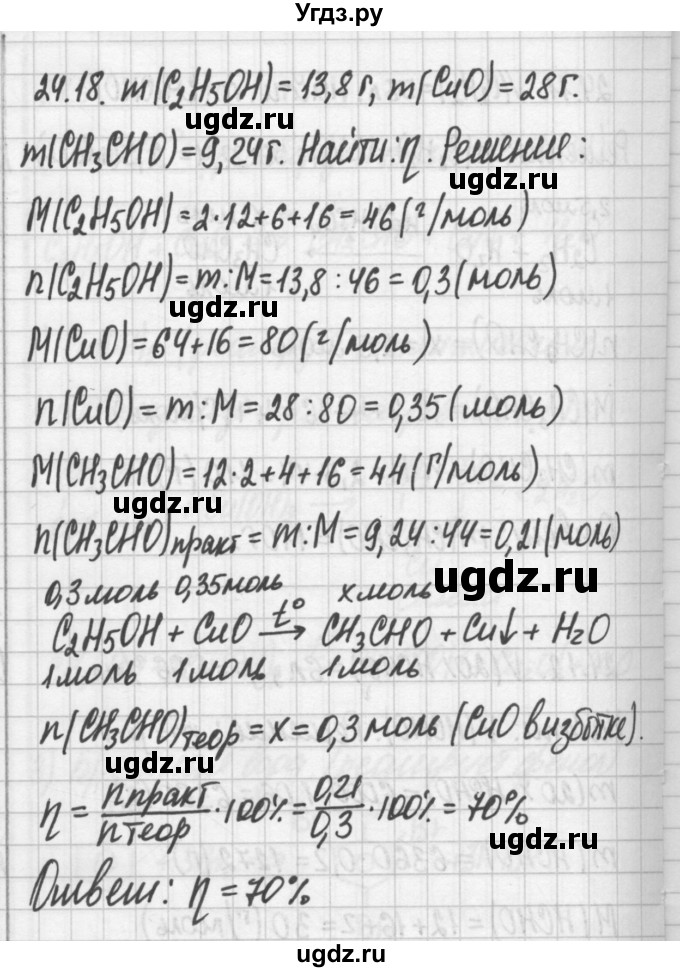 Угдз.ру
24.18. m(C₂H₅OH) = 13,8 г, m(CuO) = 28 г.
ugdz.ru
m(CH₃CHO) = 9,24 г. Найти: η. Решение:
ugdz.ru
M(C₂H₅OH) = 2·12+6+16 = 46 (г/моль)
n(C₂H₅OH) = m:M = 13,8 : 46 = 0,3 (моль)
ugdz.ru
M(CuO) = 64+16 = 80 (г/моль)
n(CuO) = m:M = 28 : 80 = 0,35 (моль)
M(CH₃CHO) = 12·2+4+16 = 44 (г/моль)
ugdz.ru
n(CH₃CHO)практ = m:M = 9,24:44 = 0,21 (моль)
ugdz.ru
0,3 моль 0,35 моль x моль
C₂H₅OH + CuO t°→ CH₃CHO + Cu↓ + H₂O
1 моль 1 моль 1 моль
n(CH₃CHO)теор = x = 0,3 моль (CuO в избытке).
ugdz.ru
η = nпракт/nтеор · 100% = 0,21/0,3 · 100% = 70%
ugdz.ru
Ответ: η = 70%
ugdz.ru
ugdz.ru